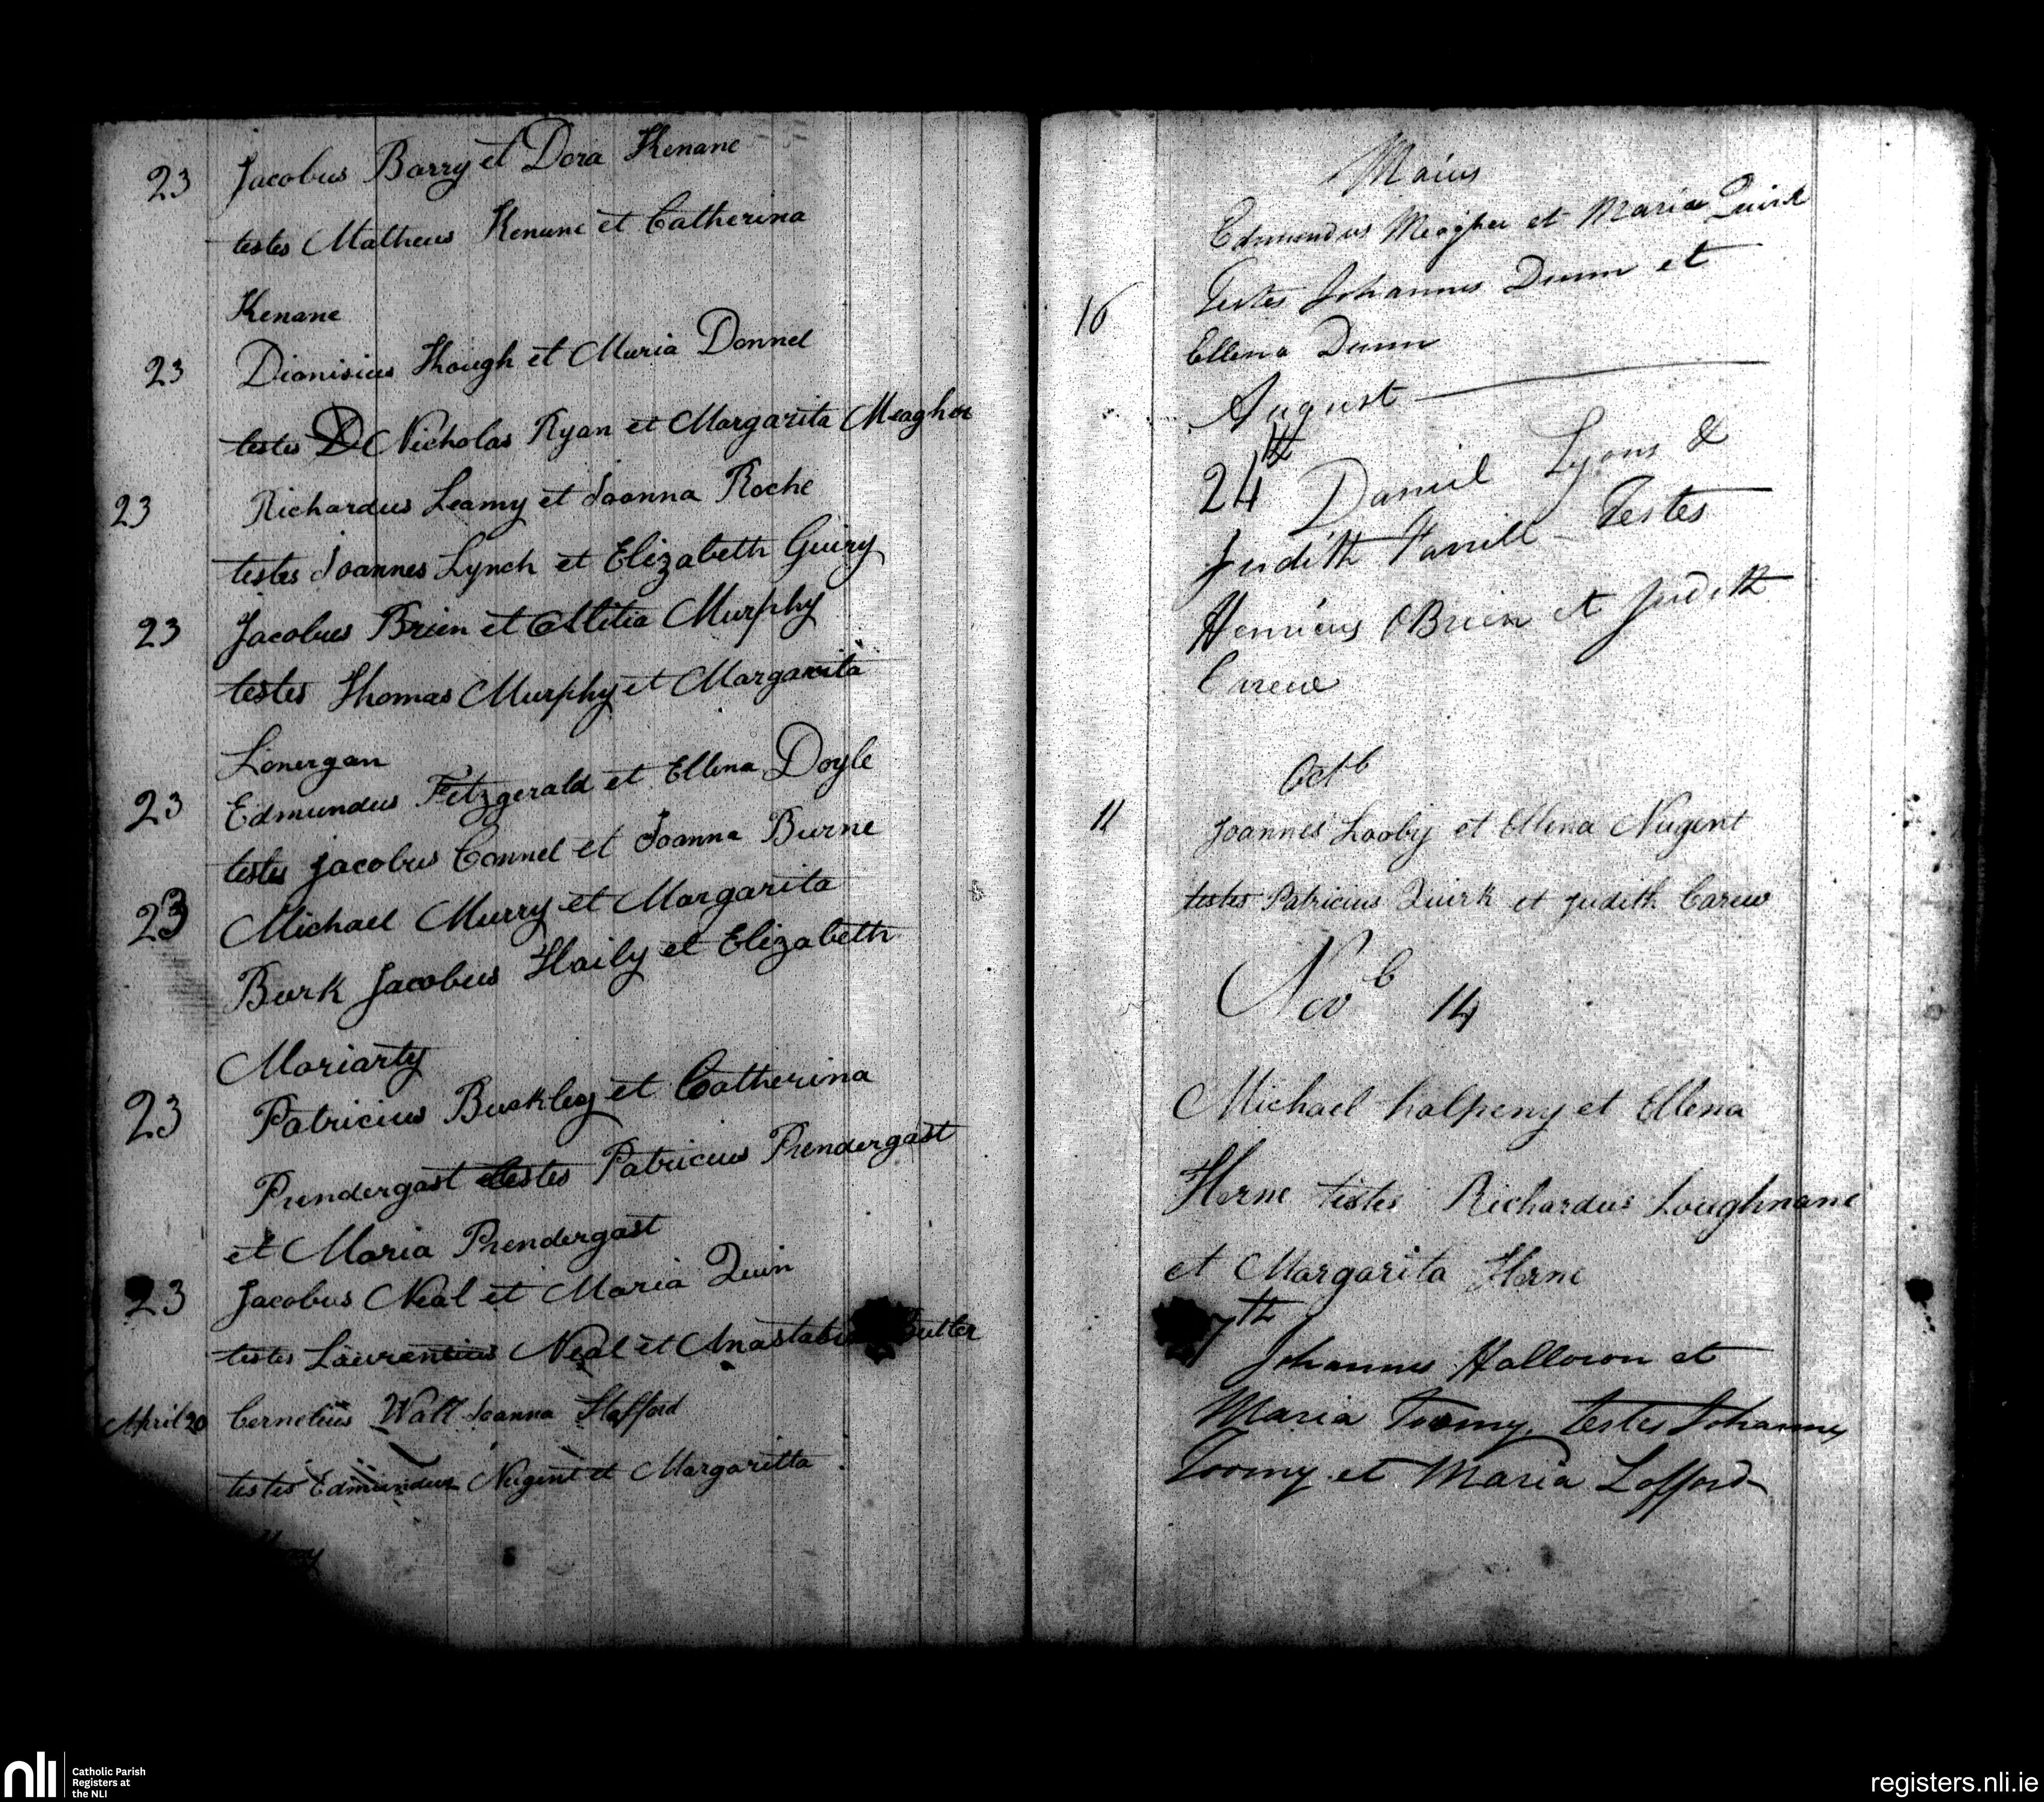 23 Jacobus Barry et Dora Kenane
testes Matheus Kenane et Catherina
Kenane
23 Dionisius Hough et Maria Donnel
testes D Nicholas Ryan et Margarita Meagher
23 Richardus Leamy et Joanna Roche
testes Joannes Lynch et Elizabeth Guiry
23 Jacobus Brien et Alletia Murphy
testes Thomas Murphy et Margarita
Lonergan
23 Edmundus Fitzgerald et Ellena Doyle
testes Jacobus Connel et Joanna Burne
23 Michael Murry et Margarita
Burk Jacobus Haily et Elizabeth
Moriarty
23 Patricius Buckley et Catherina
Prendergast testes Patricius Prendergast
et Maria Prendergast
23 Jacobus Neal et Maria Quin
testes Laurentius Neal et Anastatia Butler
April 20 Cornelius Wall Joanna Stafford
testes Edmundus Nugent et Margaritta
Maius
Edmundus Meagher et Maria Quirk
Testes Johannes Dunn et
16
Ellena Dunn
August
24th Daniel Lyons &
Judith Farrill Testes
Henricus OBrien et Judith
Carew
Octb
11 Joannes Looby et Ellena Nugent
testes Patricius Quirk et Judith Carew
Novb 14
Michael halpeny et Ellena
Herne testes Richardus Loughnane
et Margarita Herne
7th
Johannes Halloron et
Maria Toomy. Testes Johannes
Toomy et Maria Lofford
nli
Catholic Parish
Registers at
the NLI
registers.nli.ie